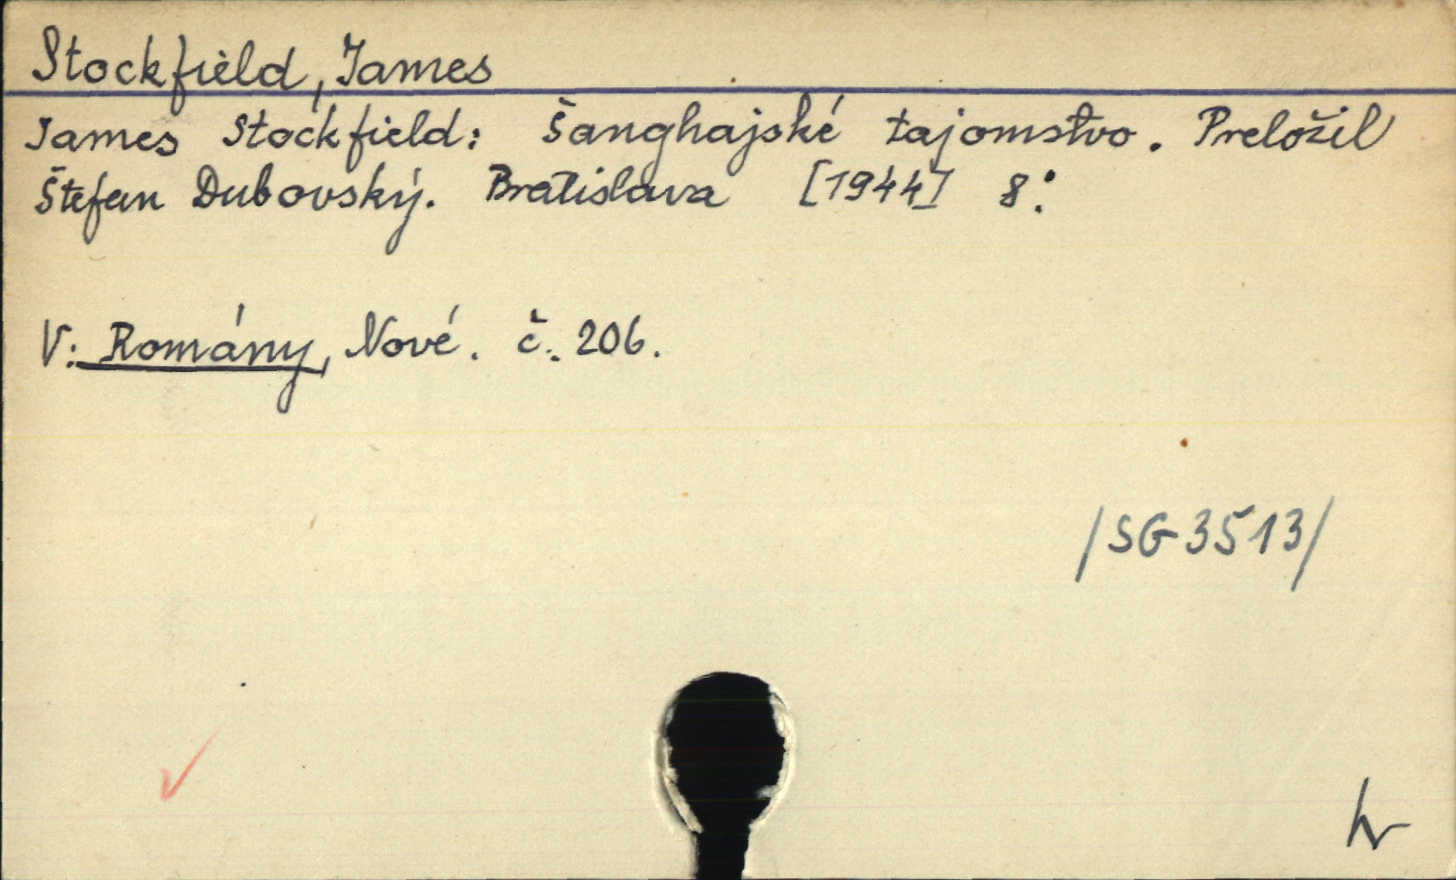 Stockfield, James
James Stockfield: Šanghajské tajomstvo. Preložil
Štefan Dubovský. Bratislava [1944] 8°.
V: Romány, Nové. č. 206.
/SG 3513/